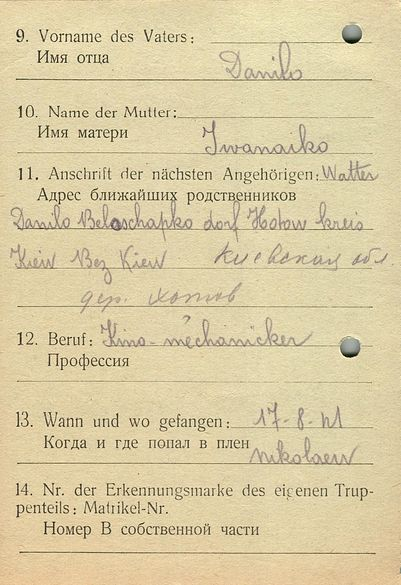 9. Vorname des Vaters:
Имя отца
Danilo
10. Name der Mutter:
Имя матери
Iwanaiko
11. Anschrift der nächsten Angehörigen: Watter
Адрес ближайших родственников
Danilo Beloschapko dorf Hotow kreis
Kiew Bez Kiew Киевская обл
дер. Хотов
12. Beruf: Kino-mechanicker
Профессия
13. Wann und wo gefangen: 17-8-41
Когда и где попал в плен
Nikolaew
14. Nr. der Erkennungsmarke des eigenen Trup-
penteils: Matrikel-Nr.
Номер В собственной части